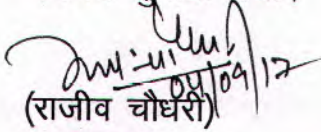 04/09/12
(राजीव चौधरी)